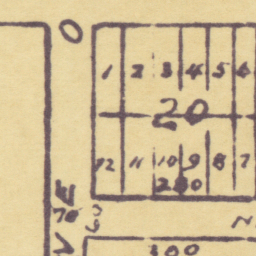 O
1 2 3 4 5 6
20
12 11 10 9 8 7
200
VE
70
N
300